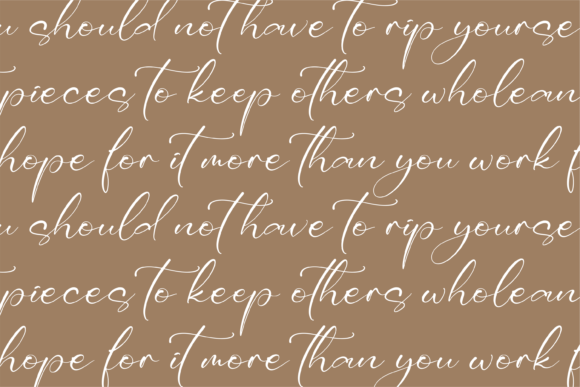 u should not have to rip yourse
pieces to keep others wholean
hope for it more than you work f
u should not have to rip yourse
pieces to keep others wholean
hope for it more than you work f